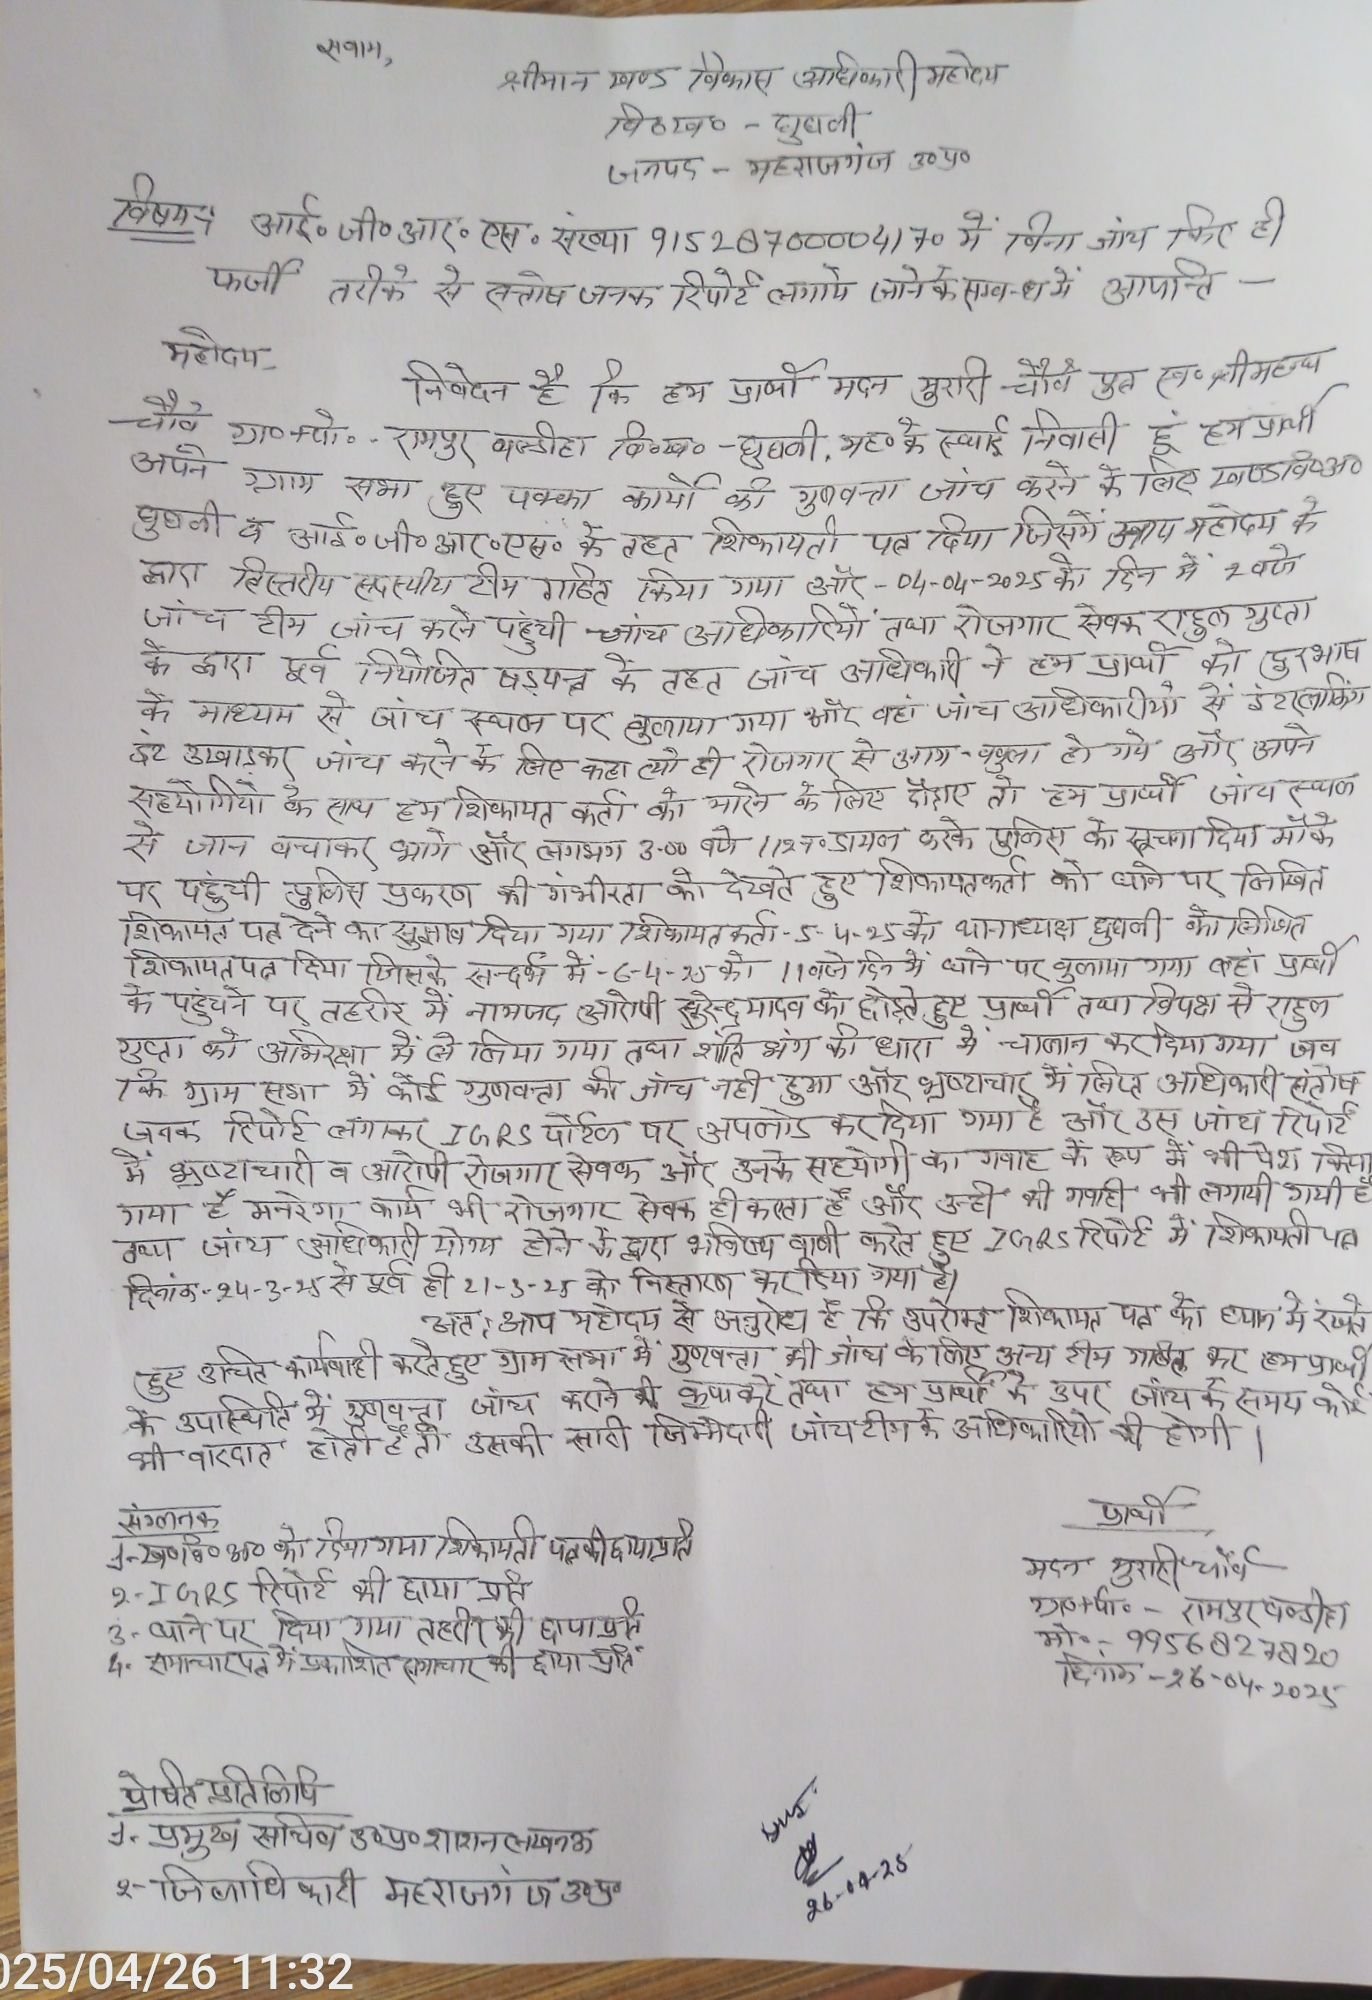 सेवाम,
श्रीमान खण्ड विकास अधिकारी महोदय
वि०ख० - घुघली
जनपद - महराजगंज उ०प्र०
विषय: आई०जी०आर०एस० संख्या 91528700004170 में बिना जांच किए ही
फर्जी तरीके से सन्तोष जनक रिपोर्ट लगाये जाने के सम्बन्ध में आपत्ति -
महोदय-
निवेदन है कि हम प्रार्थी मदन मुरारी चौबे पुत्र स्व० श्री
चौबे ग्रा०+पो० - रामपुर वि०ख० - घुघली, मह० के स्थाई निवासी हूं हम प्रार्थी
अपने ग्राम सभा हुए पक्का कार्यो की गुणवत्ता जांच करने के लिए खण्ड वि०अ०
घुघली व आई०जी०आर०एस० के तहत शिकायती पत्र दिया जिसमें आप महोदय के
द्वारा त्रिस्तरीय सदस्यीय टीम गठित किया गया और - 04-04-2025 को दिन में 2 बजे
जांच टीम जांच करने पहुंची जांच अधिकारियों तथा रोजगार सेवक राहुल गुप्ता
के द्वारा पूर्व नियोजित षड़यन्त्र के तहत जांच अधिकारी ने हम प्रार्थी को दुरभाष
के माध्यम से जांच स्थल पर बुलाया गया और वहां जांच अधिकारीयो से इंटरलाकिंग
ईट उखाड़कर जांच करने के लिए कहा त्यो ही रोजगार से आग-बबुला हो गये और अपने
सहयोगियो के साथ हम शिकायत कर्ता को मारने के लिए दौड़ाए तो हम प्रार्थी जांच स्थल
से जान बचाकर भागे और लगभग 3.00 बजे 112 न० डायल करके पुलिस को सूचना दिया मौके
पर पहुंची पुलिस प्रकरण की गंभीरता को देखते हुए शिकायतकर्ता को थाने पर लिखित
शिकायत पत्र देने का सुझाव दिया गया शिकायत कर्ता - 5-4-25 को थानाध्यक्ष घुघली को लिखित
शिकायत पत्र दिया जिसके सन्दर्भ में - 6-4-25 को 11 बजे दिन में थाने पर बुलाया गया वहां प्रार्थी
के पहुंचने पर तहरीर में नामजद आरोपी सुरेन्द्र यादव को छोड़ते हुए प्रार्थी तथा विपक्ष से राहुल
गुप्ता को अभिरक्षा में ले लिया गया तथा शांति भंग की धारा में चालान कर दिया गया जब
कि ग्राम सभा में कोई गुणवत्ता की जांच नही हुआ और भ्रष्टाचार में लिप्त अधिकारी संतोष
जनक रिपोर्ट लगाकर IGRS पोर्टल पर अपलोड कर दिया गया है और उस जांच रिपोर्ट
में भ्रष्टाचारी व आरोपी रोजगार सेवक और उनके सहयोगी का गवाह के रूप में भी पेश किया
गया है मनरेगा कार्य भी रोजगार सेवक ही करता है और उन्ही की गवाही भी लगायी गयी है
तथा जांच अधिकारी योग्य होने के द्वारा भविष्य वाणी करते हुए IGRS रिपोर्ट में शिकायती पत्र
दिनांक - 24-3-25 से पूर्व ही 21-3-25 को निस्तारण कर दिया गया है।
अतः आप महोदय से अनुरोध है कि उपरोक्त शिकायत पत्र को ध्यान में रखते
हुए उचित कार्यवाही करते हुए ग्राम सभा में गुणवत्ता की जांच के लिए अन्य टीम गठित कर हम प्रार्थी
के उपस्थिति में गुणवत्ता जांच कराने की कृपा करें तथा हम प्रार्थी के उपर जांच के समय कोई
भी वारदात होती है तो उसकी सारी जिम्मेदारी जांच टीम के अधिकारियो की होगी।
संग्लनक
1- ख०वि०अ० को दिया गया शिकायती पत्र की छायाप्रति
2- IGRS रिपोर्ट की छाया प्रति
3- थाने पर दिया गया तहरीर की छायाप्रति
4- समाचार पत्र में प्रकाशित समाचार की छाया प्रति
प्रार्थी
मदन मुरारी चौबे
ग्रा०+पो० - रामपुर
मो०:- 9956827820
दिनांक - 26-04-2025
प्रेषित प्रतिलिपि
1- प्रमुख सचिव उ०प्र० शासन लखनऊ
2- जिलाधिकारी महराजगंज उ०प्र०
26-04-25
025/04/26 11:32